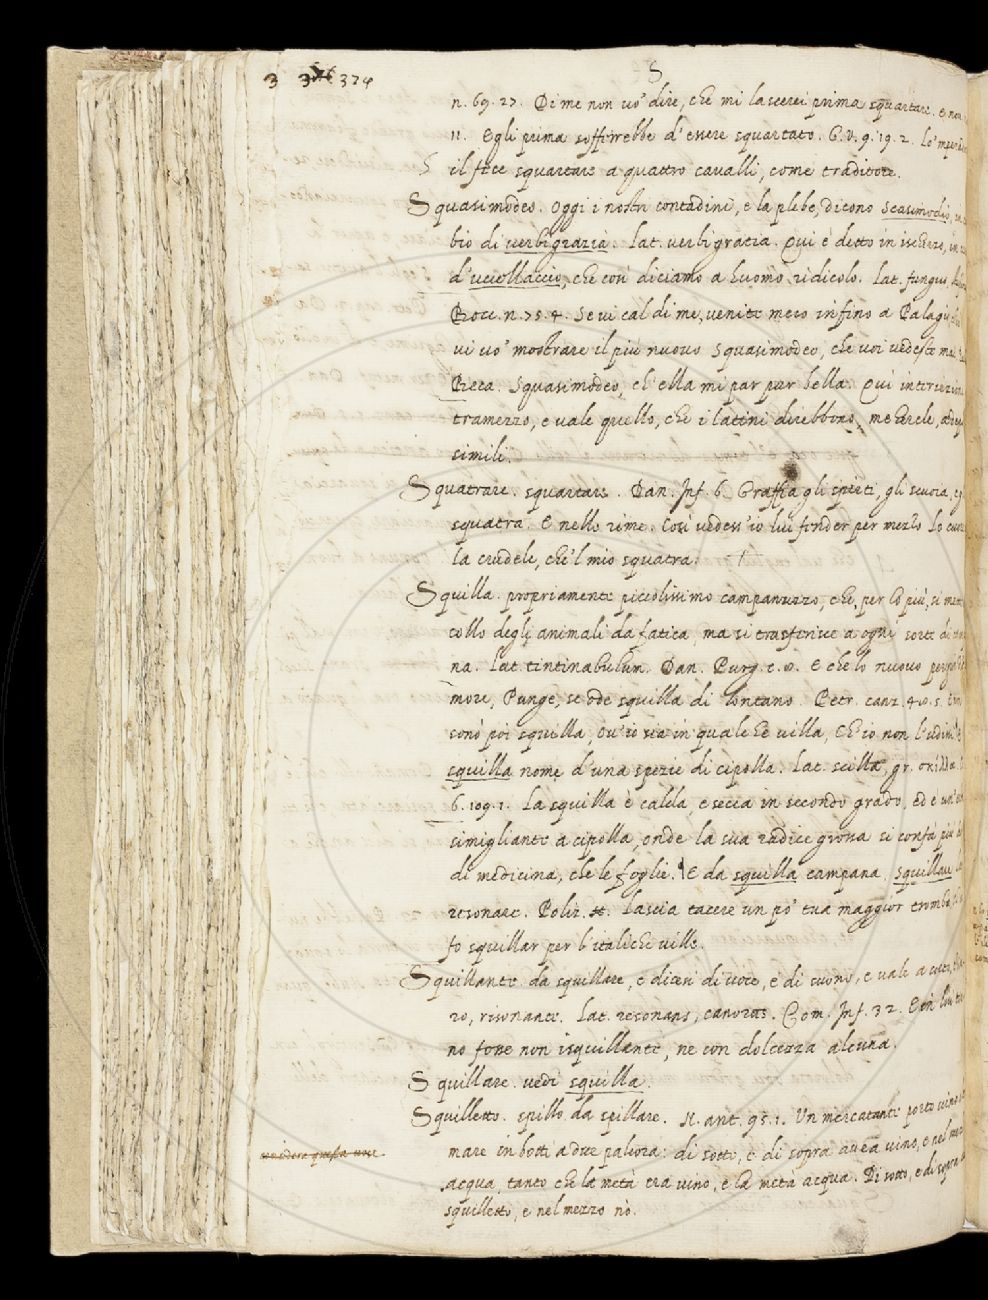 3 324
S
n. 69. 27. Di me non vo' dire, che mi lascerei prima squartare. e non
11. Egli prima soffirrebbe d'essere squartato. G. V. 9. 19. 2. Lo'mper
S il fece squartare a quattro cavalli, come traditore.
Squasimodeo. Oggi i nostri contadini, e la plebe, dicono Scasimodio, in
bio di verbigrazia. Lat. verbi gratia. Qui è detto in ischerzo, in
d'uccellaccio, che così diciamo a huomo ridicolo. Lat. fungus,
Bocc. n. 75. 4. Se vi cal di me, venite meco infino a Palagi
vi vo' mostrare il più nuovo Squasimodeo, che voi vedeste mai
Beca. Squasimodeo, ch'ella mi par pur bella. Qui
tramezzo, e vale quello, che i latini direbbono, mehercle,
simili.
Squatrare. squartare. Dan. Inf. 6. Graffia gli spirti, gli scuoia,
squatra. E nelle rime. Così vedess'io lui fender per mezzo Lo cuore
la crudele, che'l mio squatra.
Squilla. propriamente piccolissimo campanuzzo, che, per lo più, si mette
collo degli animali da fatica, ma si trasferisce a ogni sorte di
na. Lat. tintinabulum. Dan. Purg. c. 8. E che lo nuovo
more, Punge, se ode squilla di lontano. Petr. canz. 40. 5.
sonò poi squilla, ov'io sia in qualche villa, Ch'io non l'udissi
squilla nome d'una spezie di cipolla. Lat. scilla, gr. σκίλλα.
6. 109. 1. La squilla è calda, e secca in secondo grado, ed è
simigliante a cipolla, onde la sua radice grossa si confà più
di medicina, che le foglie. E da squilla campana, squillare
resonare. Poliz. st. Lascia tacere un po' tua maggior tromba,
fo squillar per l'italiche ville.
Squillante. da squillare, e dicesi di voce, e di suono, e vale
ro, risonante. Lat. resonans, canorus. Com. Inf. 32.
no fosse non isquillante, ne con dolcezza alcuna.
Squillare. vedi squilla.
Squilletto. spillo da spillare. N. ant. 95. 1. Un mercatante portò vino
mare in botti a due palcora: di sotto, e di sopra avea vino, e nel
acqua, tanto che la metà era vino, e la metà acqua. Di sotto, e di sopra
squilletto, e nel mezzo nò.